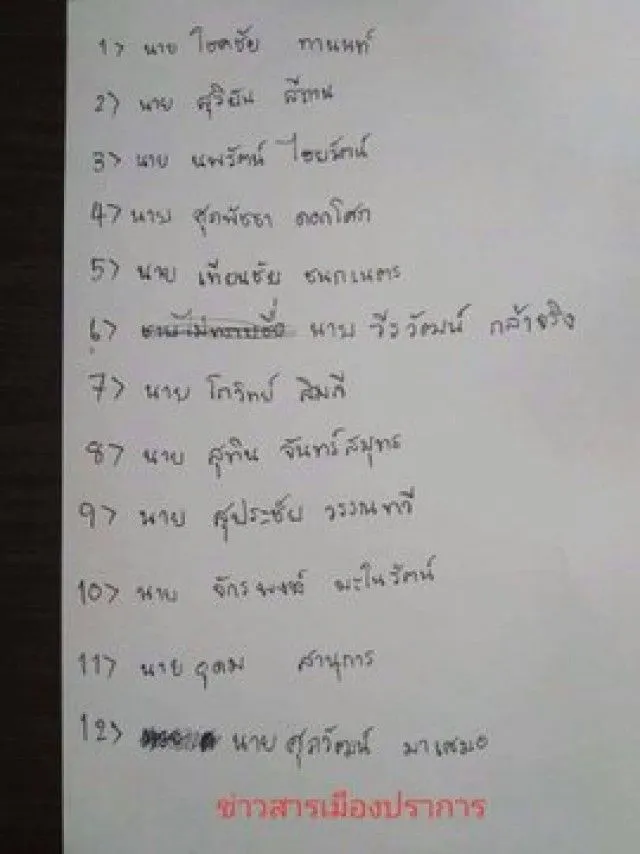 1> นาย โชคชัย ทานนท์
2> นาย สุริยัน สีทาน
3> นาย นพรัตน์ ไชยรัตน์
4> นาย ศุภพัชชา ดอกโศก
5> นาย เทียนชัย ชนกเนตร
6> นาย วีรวัฒน์ กล้าจริง
7> นาย โกวิทย์ สิมลี
8> นาย สุทิน จันทร์สมุทร
9> นาย ศุประชัย วรรณทวี
10> นาย จักรพงษ์ มะโนรัตน์
11> นาย อุดม สานุการ
12> นาย ศุภวัฒน์ มาเสมอ
ข่าวสารเมืองปราการ